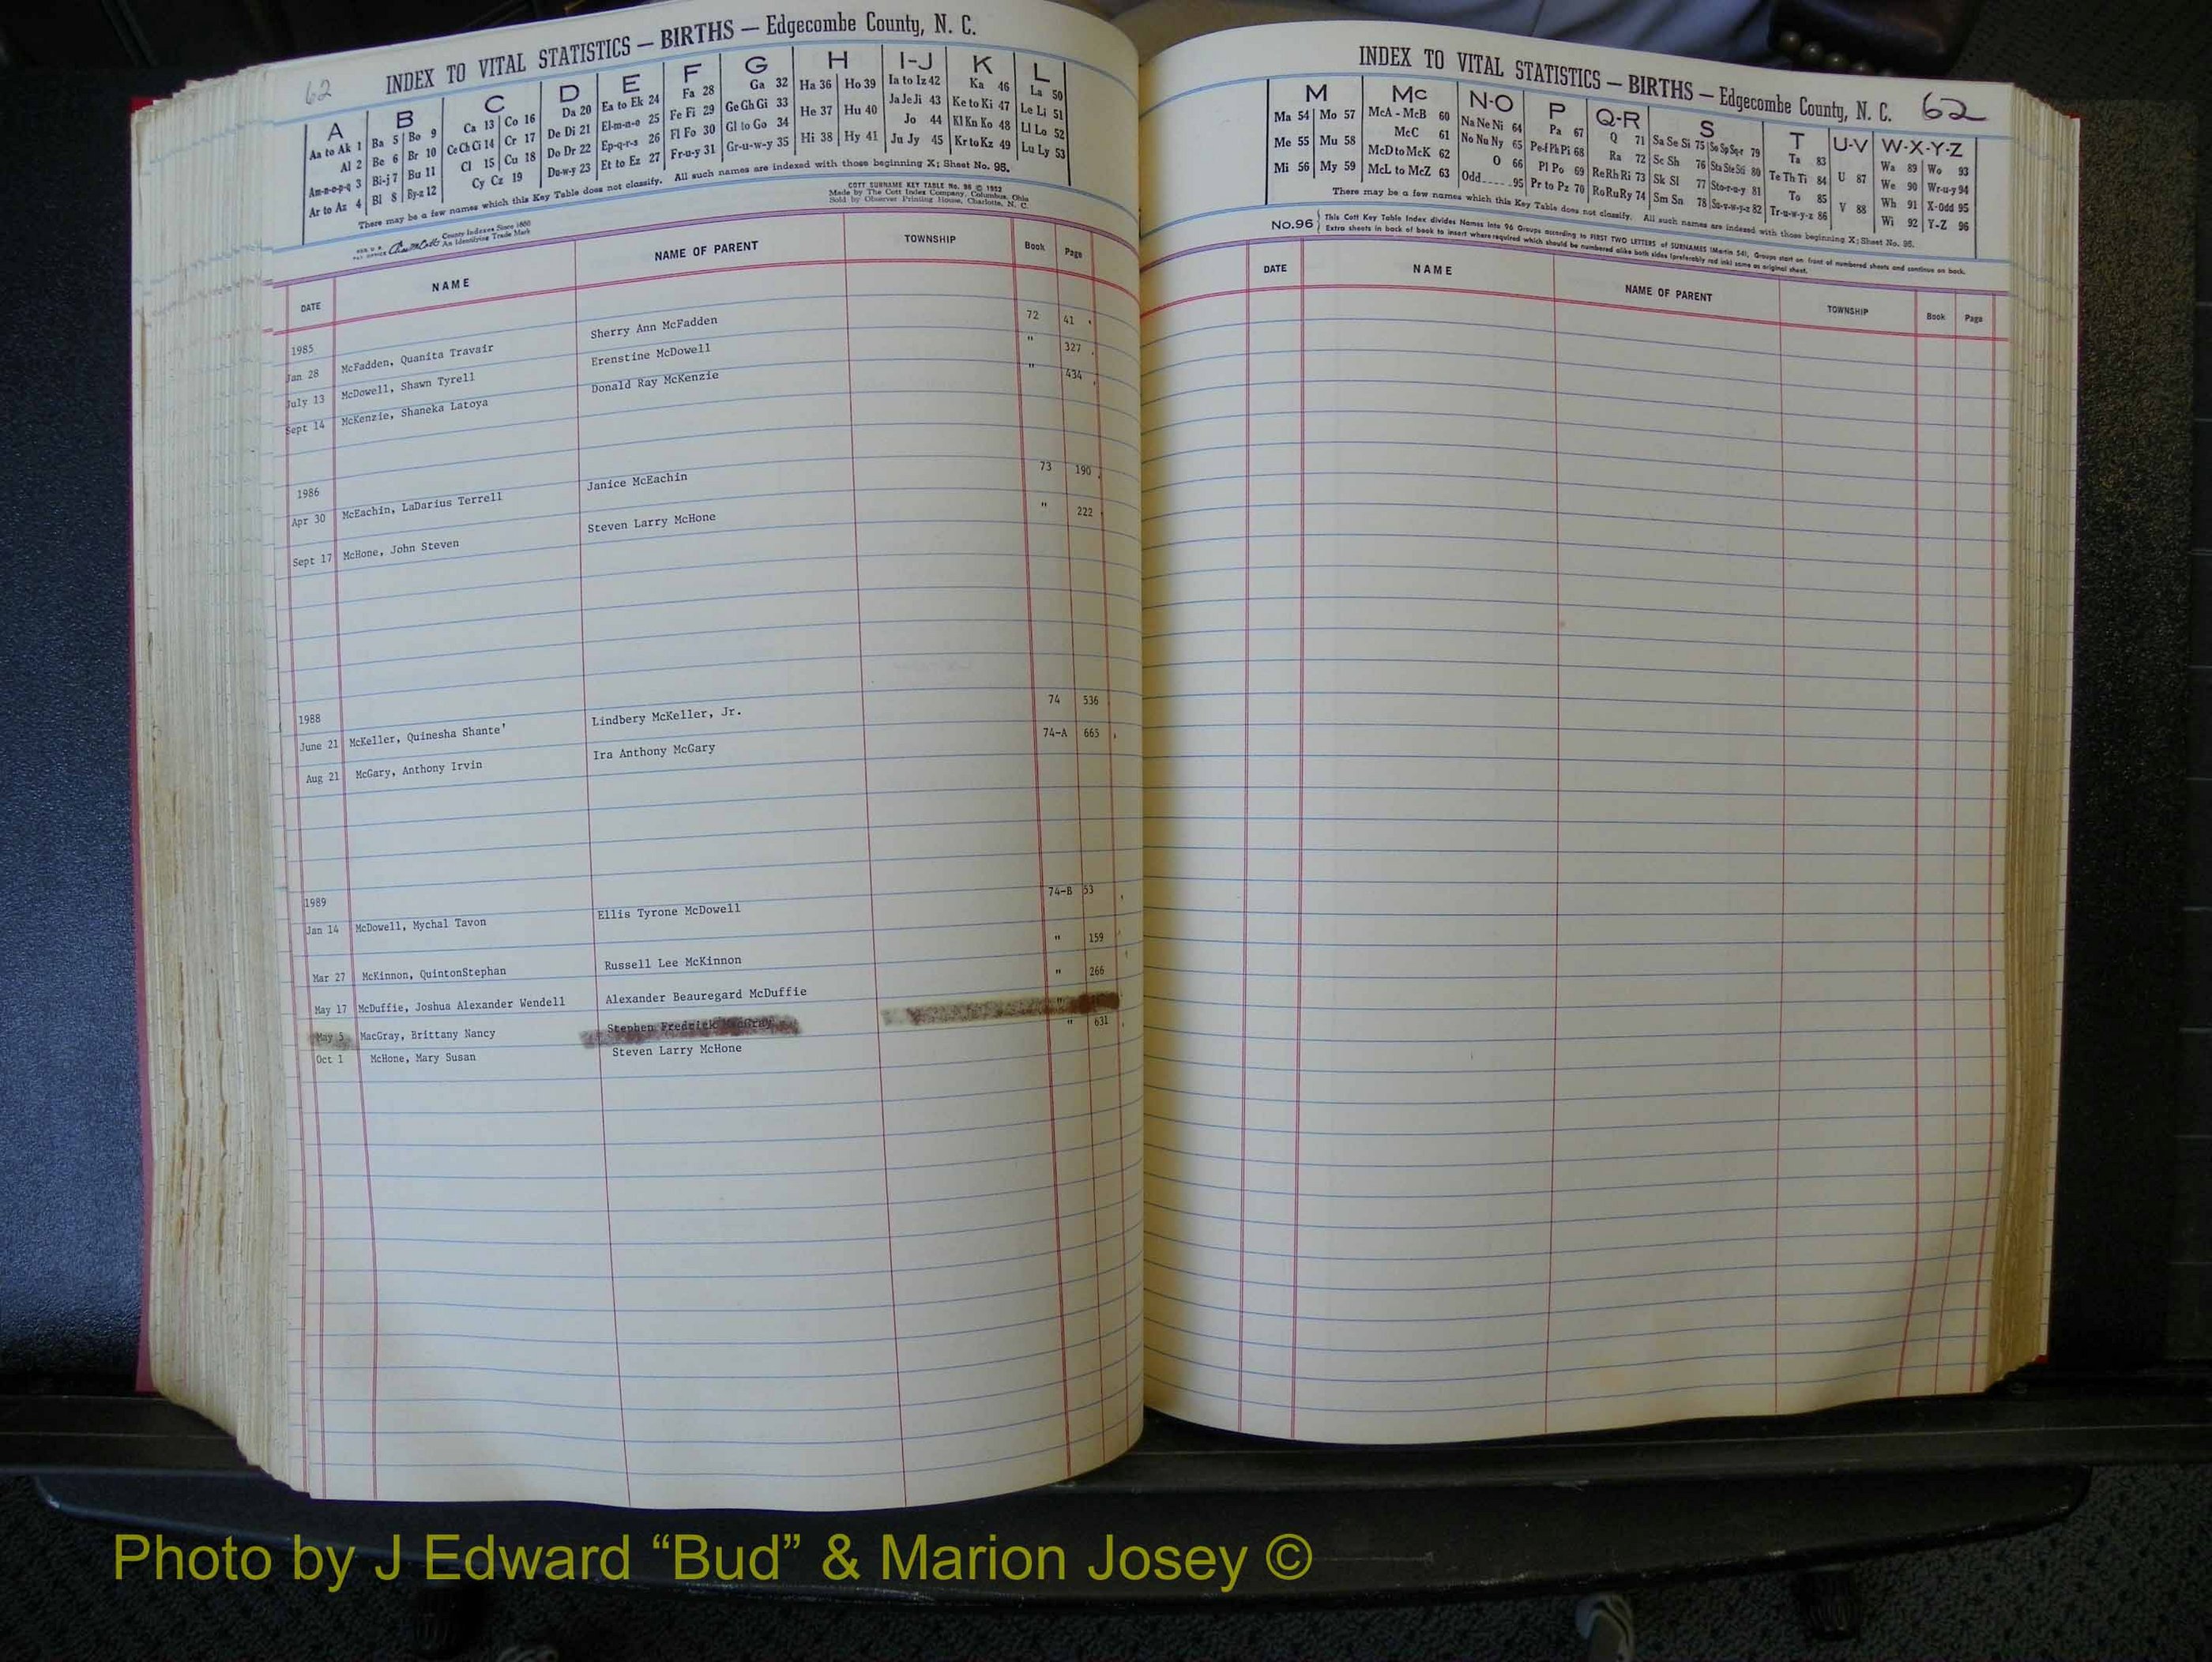 62
INDEX TO VITAL STATISTICS — BIRTHS — Edgecombe County, N. C.
A B C D E F G H I-J K L
Aa to Ak 1 Ba 5 Bo 9 Ca 13 Co 16 Da 20 Ea to Ek 24 Fa 28 Ga 32 Ha 36 Ho 39 Ia to Iz 42 Ka 46 La 50
Al 2 Be 6 Br 10 Ce Ch Ci 14 Cr 17 De Di 21 El-m-n-o 25 Fe Fi 29 Ge Gh Gi 33 He 37 Hu 40 Ja Je Ji 43 Ke to Ki 47 Le Li 51
Am-n-o-p-q 3 Bi-j 7 Bu 11 Cl 15 Cu 18 Do Dr 22 Ep-q-r-s 26 Fl Fo 30 Gl to Go 34 Hi 38 Hy 41 Jo 44 Kl Kn Ko 48 Ll Lo 52
Ar to Az 4 Bl 8 By-z 12 Cy Cz 19 Du-w-y 23 Et to Ez 27 Fr-u-y 31 Gr-u-w-y 35 Ju Jy 45 Kr to Kz 49 Lu Ly 53
There may be a few names which this Key Table does not classify. All such names are indexed with those beginning X; Sheet No. 95.
County Indexes Since 1888
An Identifying Trade Mark
COTT SURNAME KEY TABLE No. 96 © 1952
Made by The Cott Index Company, Columbus, Ohio
Sold by Observer Printing House, Charlotte, N. C.
DATE NAME NAME OF PARENT TOWNSHIP Book Page
1985
Jan 28 McFadden, Quanita Travair Sherry Ann McFadden 72 41
July 13 McDowell, Shawn Tyrell Erenstine McDowell " 327
Sept 14 McKenzie, Shaneka Latoya Donald Ray McKenzie " 434
1986
Apr 30 McEachin, LaDarius Terrell Janice McEachin 73 190
Sept 17 McHone, John Steven Steven Larry McHone " 222
1988
June 21 McKeller, Quinesha Shante' Lindbery McKeller, Jr. 74 536
Aug 21 McGary, Anthony Irvin Ira Anthony McGary 74-A 665
1989
Jan 14 McDowell, Mychal Tavon Ellis Tyrone McDowell 74-B 53
Mar 27 McKinnon, QuintonStephan Russell Lee McKinnon " 159
May 17 McDuffie, Joshua Alexander Wendell Alexander Beauregard McDuffie " 266
May 5 MacGray, Brittany Nancy Stephen Fredrick MacGray "
Oct 1 McHone, Mary Susan Steven Larry McHone " 631
INDEX TO VITAL STATISTICS — BIRTHS — Edgecombe County, N. C. 62
M Mc N-O P Q-R S T U-V W-X-Y-Z
Ma 54 Mo 57 McA - McB 60 Na Ne Ni 64 Pa 67 Q 71 Sa Se Si 75 So Sp Sq-r 79 Ta 83 U 87 Wa 89 Wo 93
Me 55 Mu 58 McC 61 No Nu Ny 65 Pe-f Ph Pi 68 Ra 72 Sc Sh 76 Sta Ste Sti 80 Te Th Ti 84 V 88 We 90 Wr-u-y 94
Mi 56 My 59 McD to McK 62 O 66 Pl Po 69 Re Rh Ri 73 Sk Sl 77 Sto-r-u-y 81 To 85 Wh 91 X-Odd 95
McL to McZ 63 Odd 95 Pr to Pz 70 Ro Ru Ry 74 Sm Sn 78 Su-v-w-y-z 82 Tr-u-w-y-z 86 Wi 92 Y-Z 96
There may be a few names which this Key Table does not classify. All such names are indexed with those beginning X; Sheet No. 95.
No. 96 This Cott Key Table Index divides Names into 96 Groups according to FIRST TWO LETTERS of SURNAMES (Martin 54). Groups start on front of numbered sheets and continue on back.
Extra sheets in back of book to insert where required which should be numbered alike both sides (preferably red ink) same as original sheet.
DATE NAME NAME OF PARENT TOWNSHIP Book Page
Photo by J Edward “Bud” & Marion Josey ©